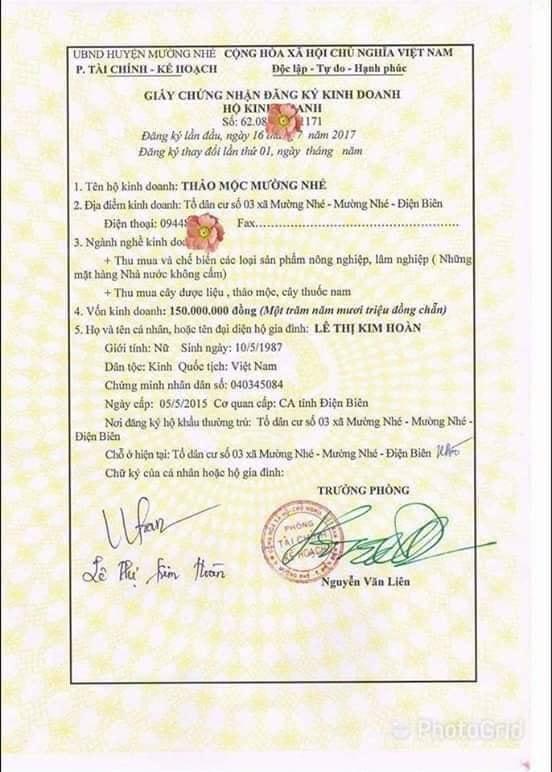 UBND HUYỆN MƯỜNG NHÉ CỘNG HÒA XÃ HỘI CHỦ NGHĨA VIỆT NAM
P. TÀI CHÍNH - KẾ HOẠCH Độc lập - Tự do - Hạnh phúc
GIẤY CHỨNG NHẬN ĐĂNG KÝ KINH DOANH
HỘ KINH DOANH
Số: 62.08 1171
Đăng ký lần đầu, ngày 16 tháng 7 năm 2017
Đăng ký thay đổi lần thứ 01, ngày tháng năm
1. Tên hộ kinh doanh: THẢO MỘC MƯỜNG NHÉ
2. Địa điểm kinh doanh: Tổ dân cư số 03 xã Mường Nhé - Mường Nhé - Điện Biên
Điện thoại: 0944 Fax
3. Ngành nghề kinh doanh
+ Thu mua và chế biến các loại sản phẩm nông nghiệp, lâm nghiệp ( Những
mặt hàng Nhà nước không cấm)
+ Thu mua cây dược liệu , thảo mộc, cây thuốc nam
4. Vốn kinh doanh: 150.000.000 đồng (Một trăm năm mươi triệu đồng chẵn)
5. Họ và tên cá nhân, hoặc tên đại diện hộ gia đình: LÊ THỊ KIM HOÀN
Giới tính: Nữ Sinh ngày: 10/5/1987
Dân tộc: Kinh Quốc tịch: Việt Nam
Chứng minh nhân dân số: 040345084
Ngày cấp: 05/5/2015 Cơ quan cấp: CA tỉnh Điện Biên
Nơi đăng ký hộ khẩu thường trú: Tổ dân cư số 03 xã Mường Nhé - Mường Nhé -
Điện Biên
Chỗ ở hiện tại: Tổ dân cư số 03 xã Mường Nhé - Mường Nhé - Điện Biên
Chữ ký của cá nhân hoặc hộ gia đình:
TRƯỞNG PHÒNG
PHÒNG
TÀI CHÍNH
KẾ HOẠCH
Lê Thị Kim Hoàn
Nguyễn Văn Liên
PhotoGrid